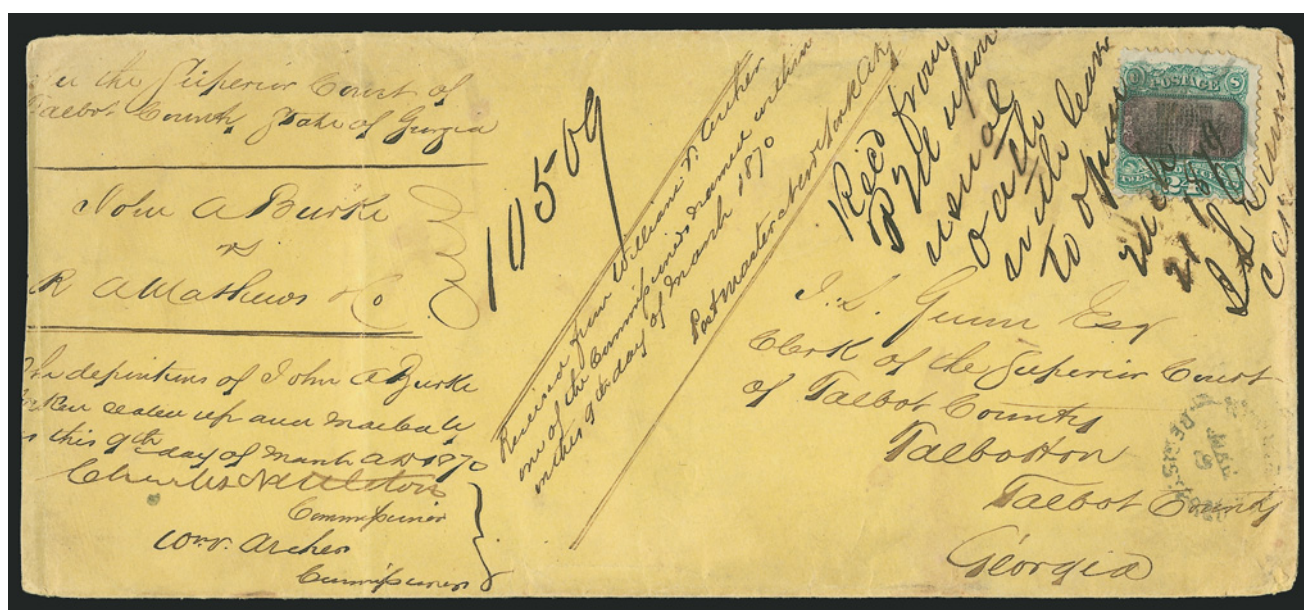 In the Superior Court of
Talbot County State of Georgia
John A Burke
vs
R A Mathews & Co
The depositions of John A Burke
taken sealed up and mailed
this 9th day of March AD 1870
Charles
Commissioner
Wm. V. Archer
Commissioner
10509
Received from William V. Archer
one of the Commissioners named within
on this 9th day of March 1870
Postmaster at New York City
Recd from
P M upon
usual
oath
with leave
to open
POSTAGE
24
J. L. Gunn Esq
Clerk of the Superior Court
of Talbot County
Talbotton
Talbot County
Georgia
MAR
9